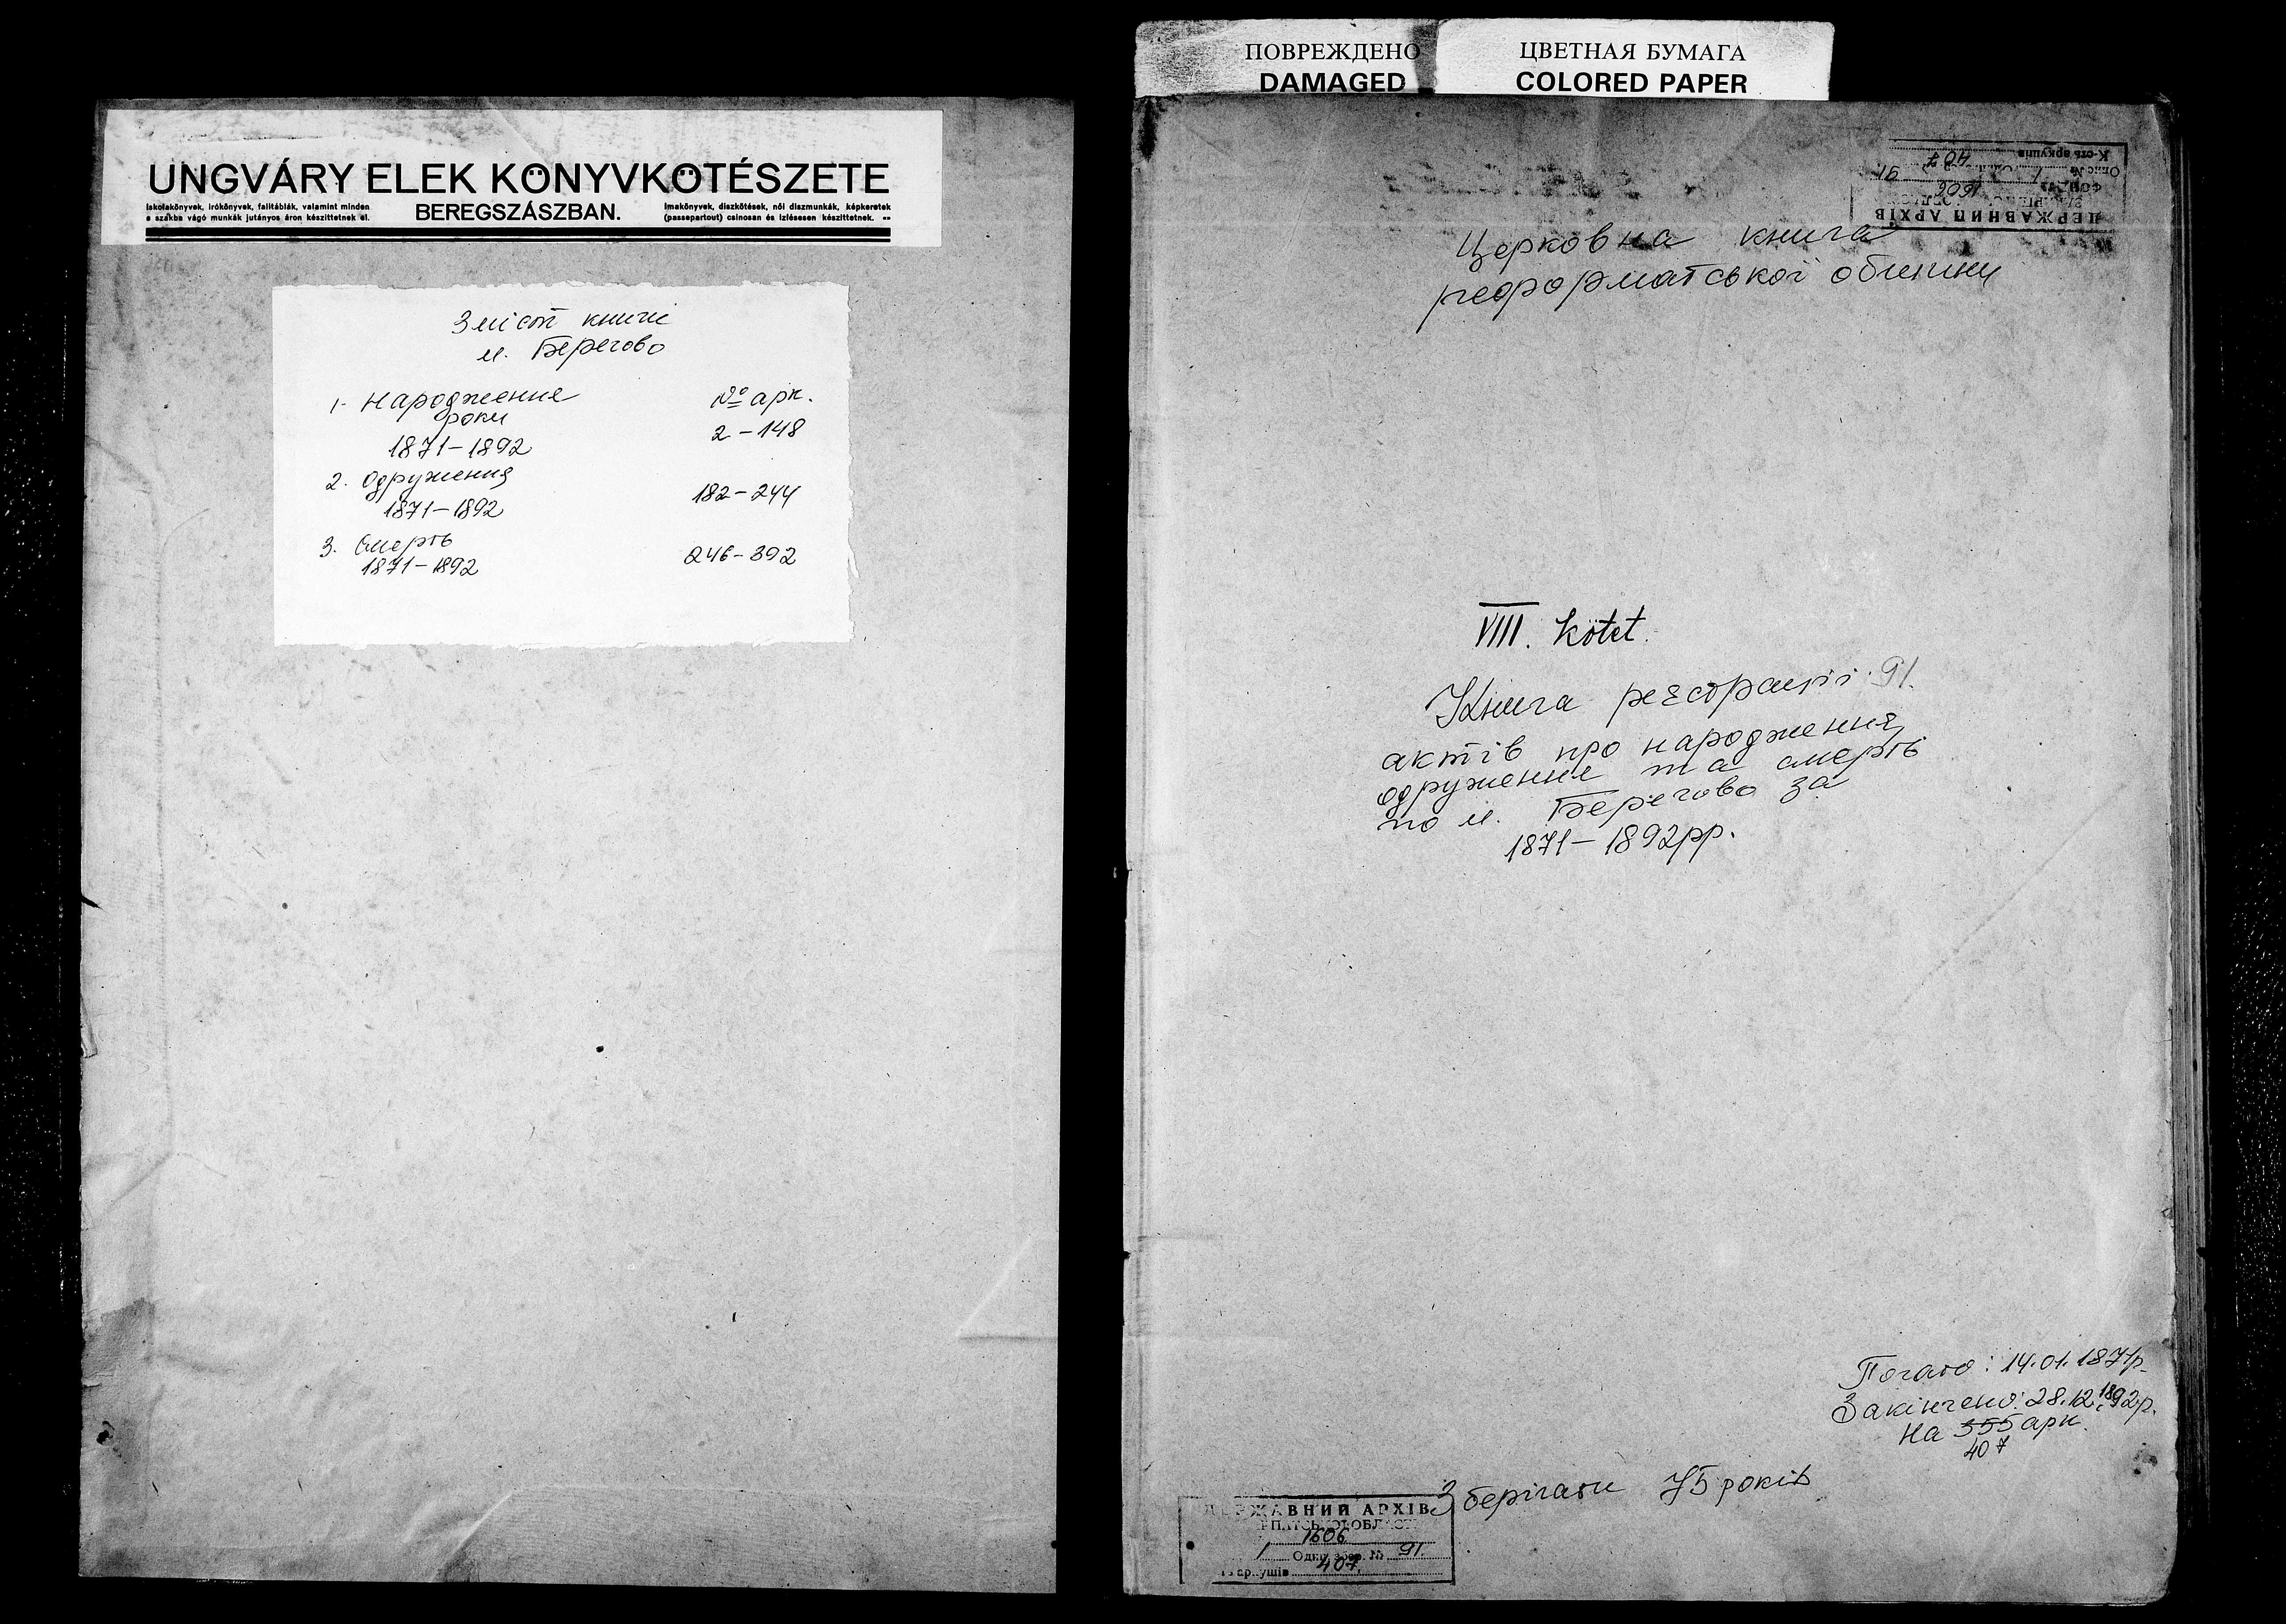 UNGVÁRY ELEK KÖNYVKÖTÉSZETE
BEREGSZÁSZBAN.
Iskolakönyvek, irókönyvek, falitáblák, valamint minden
e szakba vágó munkák jutányos áron készittetnek el.
Imakönyvek, diszkötések, női diszmunkák, képkeretek
(passepartout) csinosan és izlésesen készittetnek.
Зміст книги
м. Берегово
1. Народження № арк.
роки
1871-1892 2-148
2. Одруження
1871-1892 182-244
3. Смерть
1871-1892 246-392
ПОВРЕЖДЕНО
DAMAGED
ЦВЕТНАЯ БУМАГА
COLORED PAPER
ДЕРЖАВНИЙ АРХІВ
1606
Опис № 1 91.
К-сть аркушів 407
Церковна книга
реформатської общини
VIII. kötet.
Книга реєстрації 91.
актів про народження,
одруження та смерть
по м. Берегово за
1871-1892рр.
Почато: 14.01.1871р.
Закінчено: 28.12.1892р.
На 555 арк.
407
Зберігати 75 років
ДЕРЖАВНИЙ АРХІВ
1606
1 Один. збер. № 91.
аркушів 407.